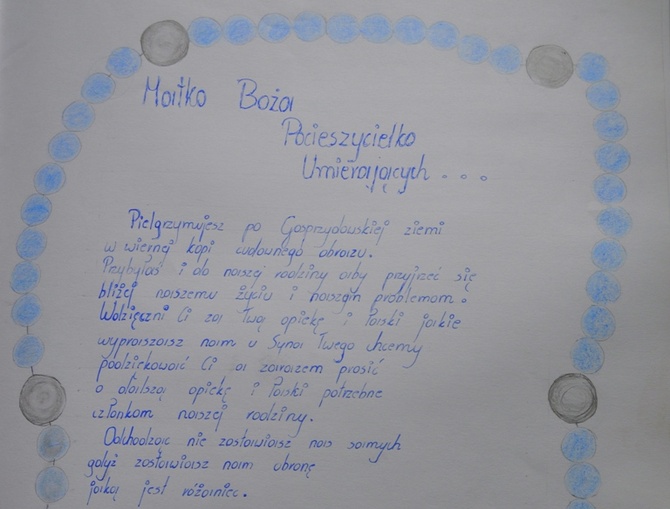 Matko Boża
Pocieszycielko
Umierających . . .
Pielgrzymujesz po Gosprzydowskiej ziemi
w wiernej kopi cudownego obrazu.
Przybyłaś i do naszej rodziny aby przyjrzeć się
bliżej naszemu życiu i naszym problemom.
Wdzięczni Ci za Twą opiekę i łaski jakie
wypraszasz nam u Syna Twego chcemy
podziękować Ci a zarazem prosić
o dalszą opiekę i łaski potrzebne
członkom naszej rodziny.
Odchodząc nie zostawiasz nas samych
gdyż zostawiasz nam obronę
jaką jest różaniec.